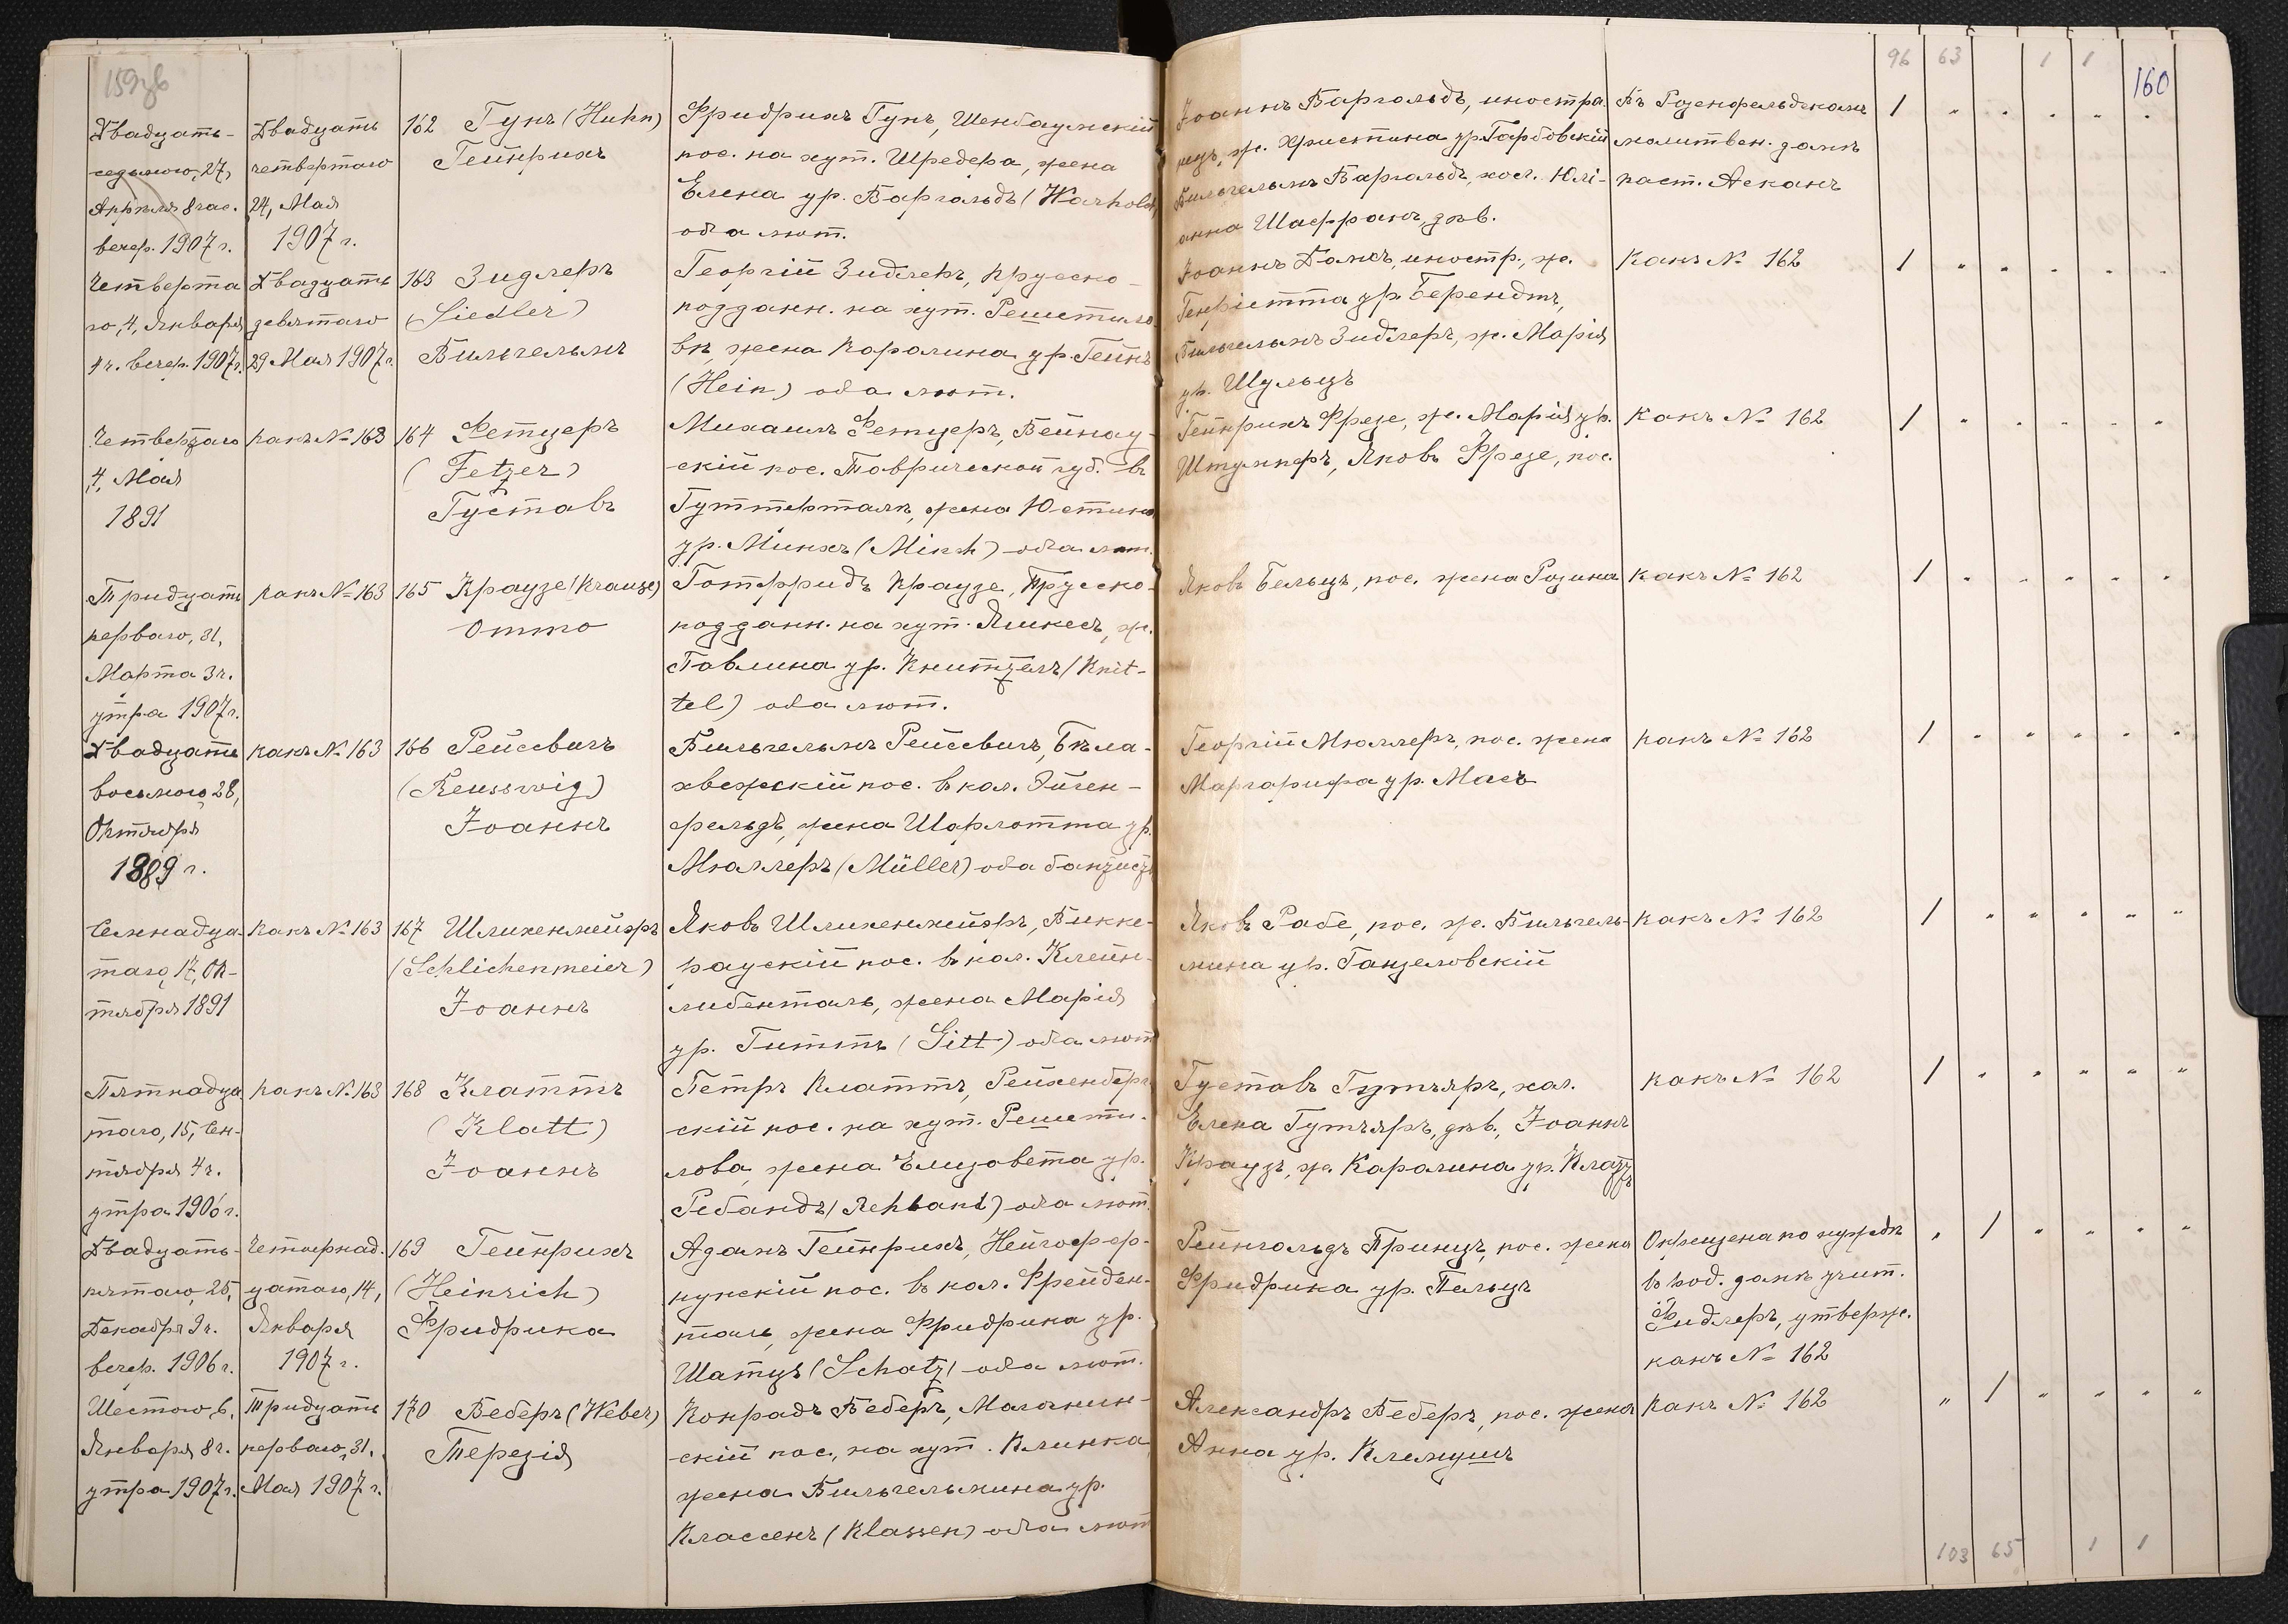 159об
96 63 1 1
160
Двадцать-
седьмого, 27,
Апрѣля 8 час.
вечер. 1907 г.
Двадцать
четвертаго
24, Мая
1907 г.
162 Гунъ (Huhn)
Гейнрихъ
Фридрихъ Гунъ, Шенбаумскій
пос. на хут. Шредера, жена
Елена ур. Варгольдъ (Warhold)
оба лют.
Іоаннъ Варгольдъ, иностра-
нецъ, ж. Христина ур. Гарбовскій
Вильгельмъ Варгольдъ, хол. Юлі-
анна Шаффранъ, дѣв.
Въ Розенфельдскомъ
молитвен. домѣ
паст.
1 " " " " "
Четверта
го, 4, Января
4 ч. вечер. 1907 г.
Двадцать
девятаго
29 Мая 1907 г.
163 Зидлеръ
(Siedler)
Вильгельмъ
Георгій Зидлеръ, Прусско-
подданн. на хут. Решетило
вѣ, жена Каролина ур. Гейнъ
(Hein) оба лют.
Іоаннъ Домсъ, иностр., ж.
Генріетта ур. Берендтъ,
Вильгельмъ Зидлеръ, ж. Марія
ур. Шульцъ
Какъ № 162
1 " " " " "
Четвертаго
4, Мая
1891
какъ № 163
164 Фетцеръ
(Fetzer)
Густавъ
Михаилъ Фетцеръ, Вейнау-
скій пос. Таврической губ. въ
Гуттерталѣ, жена Юстина
ур. Минхъ (Minch) оба лют.
Гейнрихъ Фрезе, ж. Марія ур.
Штумперъ, Яковъ Фрезе, пос.
Какъ № 162
1 " " " " "
Тридцать
перваго, 31,
Марта 3 ч.
утра 1907 г.
какъ № 163
165 Краузе (Krause)
Отто
Готфридъ Краузе, Прусско-
подданн. на хут. Яшкесъ, ж.
Павлина ур. Книттель (Knit-
tel) оба лют.
Яковъ Бельцъ, пос. жена Розина
какъ № 162
1 " " " " "
Двадцать
восьмого 28,
Октября
1889 г.
какъ № 163
166 Рейсвигъ
(Reusswig)
Іоаннъ
Вильгельмъ Рейсвигъ, Бѣла-
хвежскій пос. въ кол. Эйген-
фельдъ, жена Шарлотта ур.
Мюллеръ (Müller) оба баптисты
Георгій Мюллеръ, пос. жена
Маргарифа ур. Масъ
какъ № 162
1 " " " " "
Семнадца-
таго, 17, Ок-
тября 1891
Какъ № 163
167 Шлихенмейеръ
(Schlichenmeier)
Іоаннъ
Яковъ Шлихенмейеръ, Викке-
раускій пос. въ кол. Клейн-
либенталь, жена Марія
ур. Гиттъ (Gitt) оба лют
Яковъ Рабе, пос. ж. Вильгель-
мина ур. Ганделовскій
какъ № 162
1 " " " " "
Пятнадца
таго, 15, Сен-
тября 4 ч.
утра 1906 г.
какъ № 163
168 Клаттъ
(Klatt)
Іоаннъ
Петръ Клаттъ, Рейхенберг-
скій пос. на хут. Решети-
лова, жена Елизавета ур.
Ребандъ (Rehband) оба лют.
Густавъ Гутъяръ, хол.
Елена Гутъяръ, дѣв., Іоаннъ
Краузъ, ж. Каролина ур. Клаттъ
какъ № 162
1 " " " " "
Двадцать-
пятаго, 25,
Декабря 9 ч.
вечер. 1906 г.
Четырнад-
цатаго, 14,
Января
1907 г.
169 Гейнрихъ
(Heinrich)
Фридрика
Адамъ Гейнрихъ,
пос. въ кол. Фрейден-
таль, жена Фридрика ур.
Шатцъ (Schatz) оба лют.
Рейнгольдъ Принцъ, пос. жена
Фридрика ур. Пельцъ
Окрещена по нуждѣ
въ род. домѣ учит.
Фидлеръ, утвержд.
какъ № 162
" 1 " " " "
Шестого, 6,
Января 8 ч.
утра 1907 г.
Тридцать
перваго, 31,
Мая 1907 г.
170 Веберъ (Weber)
Терезія
Конрадъ Веберъ,
скій пос., на хут. Клинка
жена Вильгельмина ур.
Классенъ (Klassen) оба лют
Александръ Веберъ, пос. жена
Анна ур. Клемушъ
Какъ № 162
" 1 " " " "
103 65 1 1